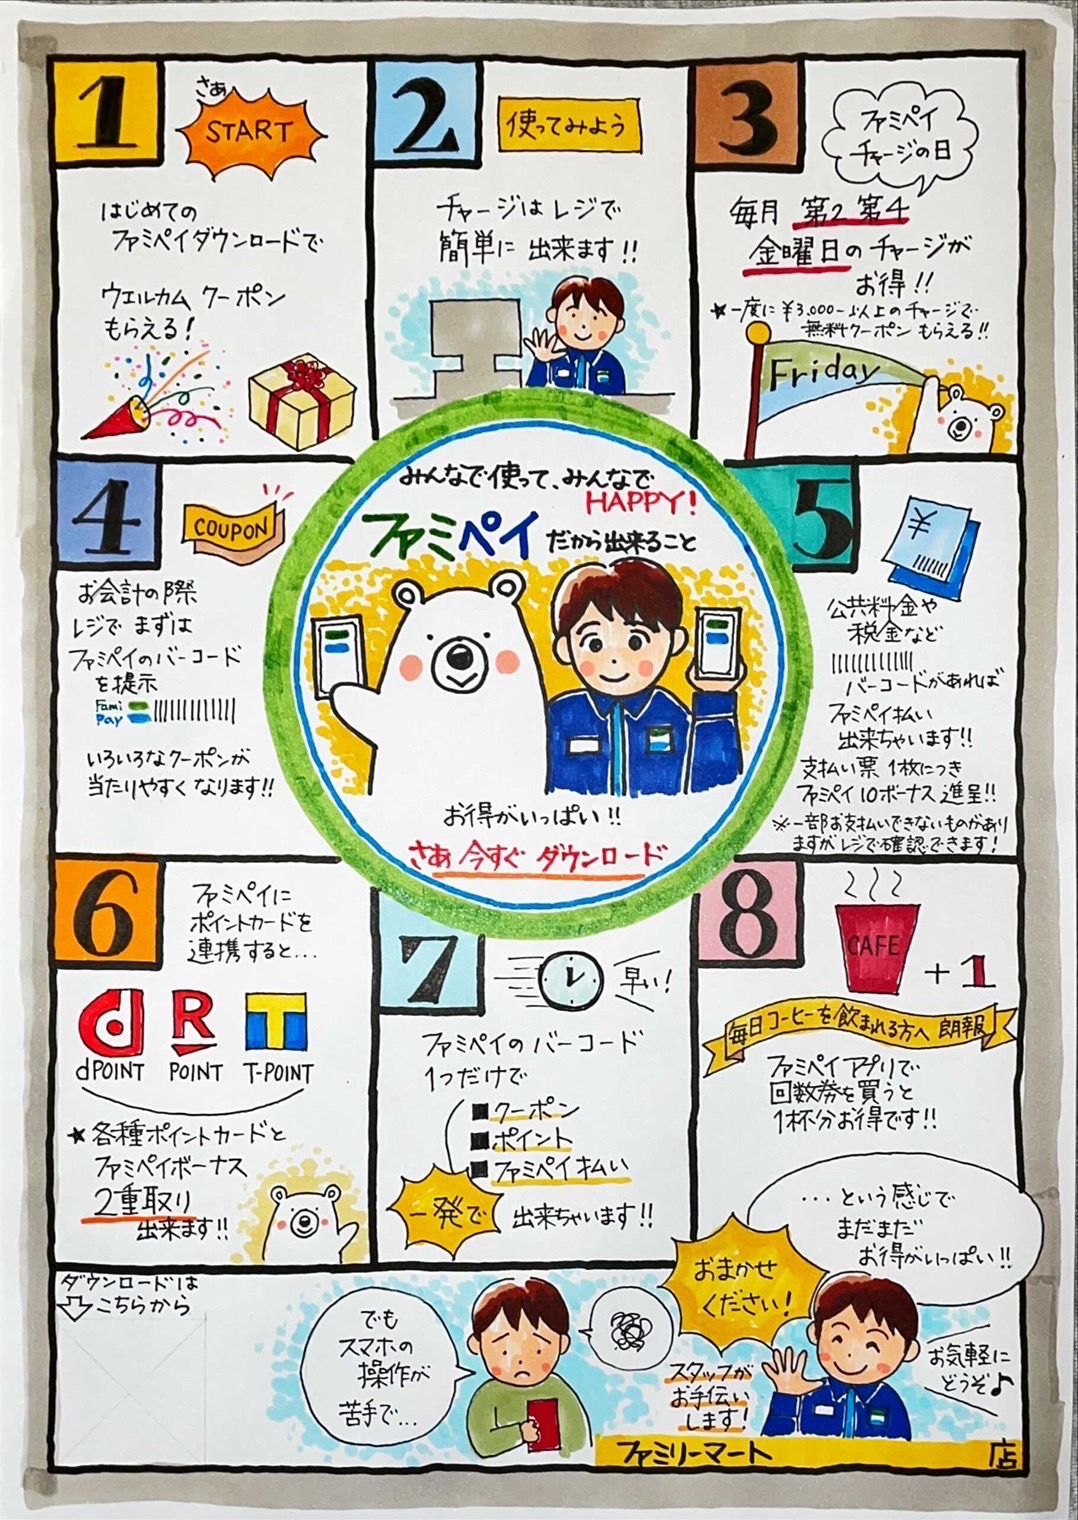 1
さあ
START
はじめての
ファミペイダウンロードで
ウェルカム クーポン
もらえる!
2
使ってみよう
チャージは レジで
簡単に 出来ます!!
3
ファミペイ
チャージの日
毎月 第2 第4
金曜日のチャージが
お得!!
★一度に¥3,000-以上のチャージで
無料クーポン もらえる!!
Friday
みんなで使って、みんなで
HAPPY!
ファミペイ だから出来ること
お得がいっぱい!!
さあ 今すぐ ダウンロード
4
COUPON
お会計の際
レジで まずは
ファミペイのバーコード
を提示
Fami
Pay
いろいろなクーポンが
当たりやすく なります!!
5
¥
公共料金や
税金など
バーコードがあれば
ファミペイ払い
出来ちゃいます!!
支払い票 1枚につき
ファミペイ10ボーナス 進呈!!
※一部お支払いできないものがあり
ますがレジで確認できます!
6
ファミペイに
ポイントカードを
連携すると...
d R T
dPOINT POINT T-POINT
★各種ポイントカードと
ファミペイボーナス
2重取り
出来ます!!
7
早い!
ファミペイの バーコード
1つだけで
■クーポン
■ポイント
■ファミペイ払い
一発で 出来ちゃいます!!
8
CAFE
+1
毎日コーヒーを飲まれる方へ 朗報
ファミペイアプリで
回数券を買うと
1杯分お得です!!
...という感じで
まだまだ
お得がいっぱい!!
ダウンロードは
こちらから
でも
スマホの
操作が
苦手で...
おまかせ
ください!
スタッフが
お手伝い
します!
お気軽に
どうぞ♪
ファミリーマート 店